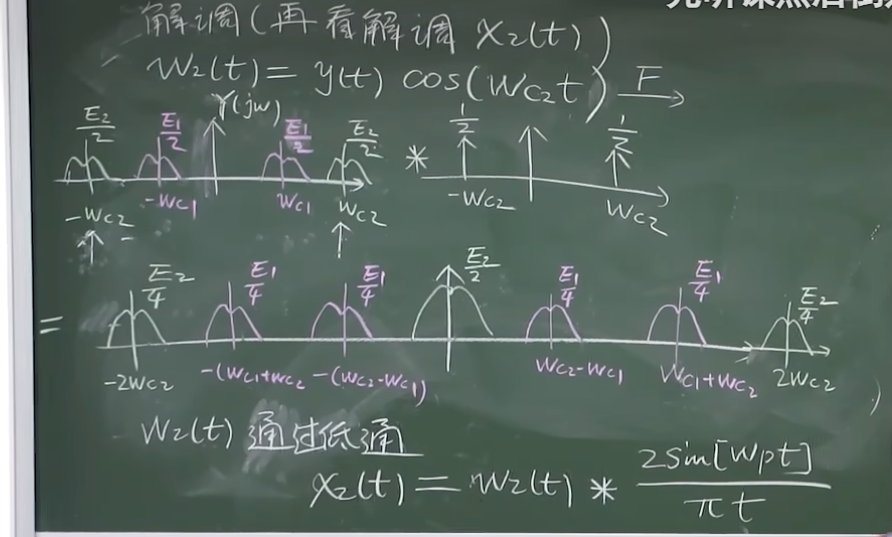 解调(再看解调 X₂(t))
W₂(t)=y(t) cos(Wc₂t) F
E₂/2 E₁/2 Y(jw) E₁/2 E₂/2 * 1/2 1/2
-Wc₂ -Wc₁ Wc₁ Wc₂ -Wc₂ Wc₂
= E₂/4 E₁/4 E₁/4 E₂/2 E₁/4 E₁/4 E₂/4
-2Wc₂ -(Wc₁+Wc₂ -(Wc₂-Wc₁) Wc₂-Wc₁ Wc₁+Wc₂ 2Wc₂
W₂(t) 通过低通
X₂(t)=W₂(t) * 2sin[Wpt]/πt